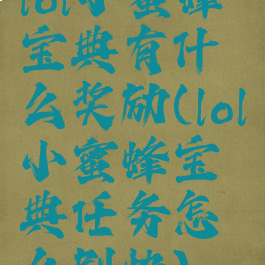 lol小蜜蜂
宝典有什
么奖励(lol
小蜜蜂宝
典任务怎
么刷快)